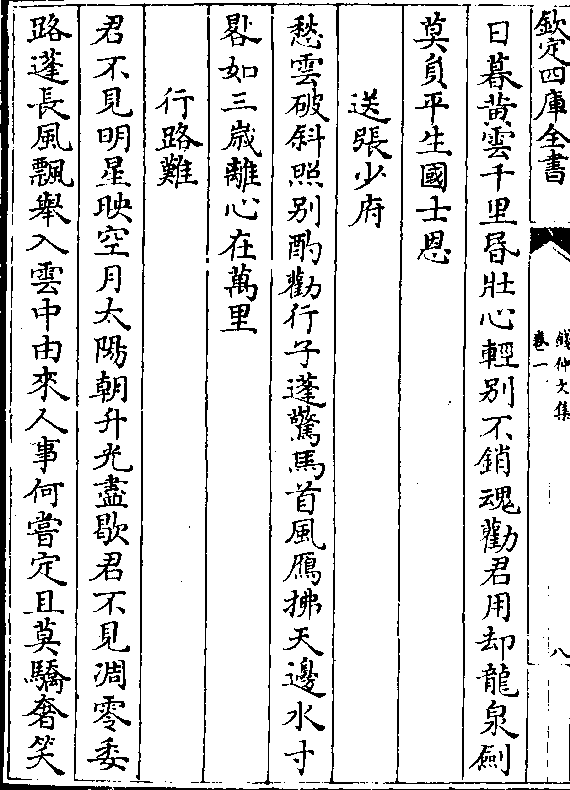 欽定四庫全書
錢仲文集
卷一
八
日暮黄雲千里昏壯心輕别不銷魂勸君用却龍泉劍
莫負平生國士恩
送張少府
愁雲破斜照别酌勸行子蓬驚馬首風雁拂天邊水寸
晷如三歲離心在萬里
行路難
君不見明星映空月太陽朝升光盡歇君不見凋零委
路蓬長風飄舉入雲中由來人事何嘗定且莫驕奢笑